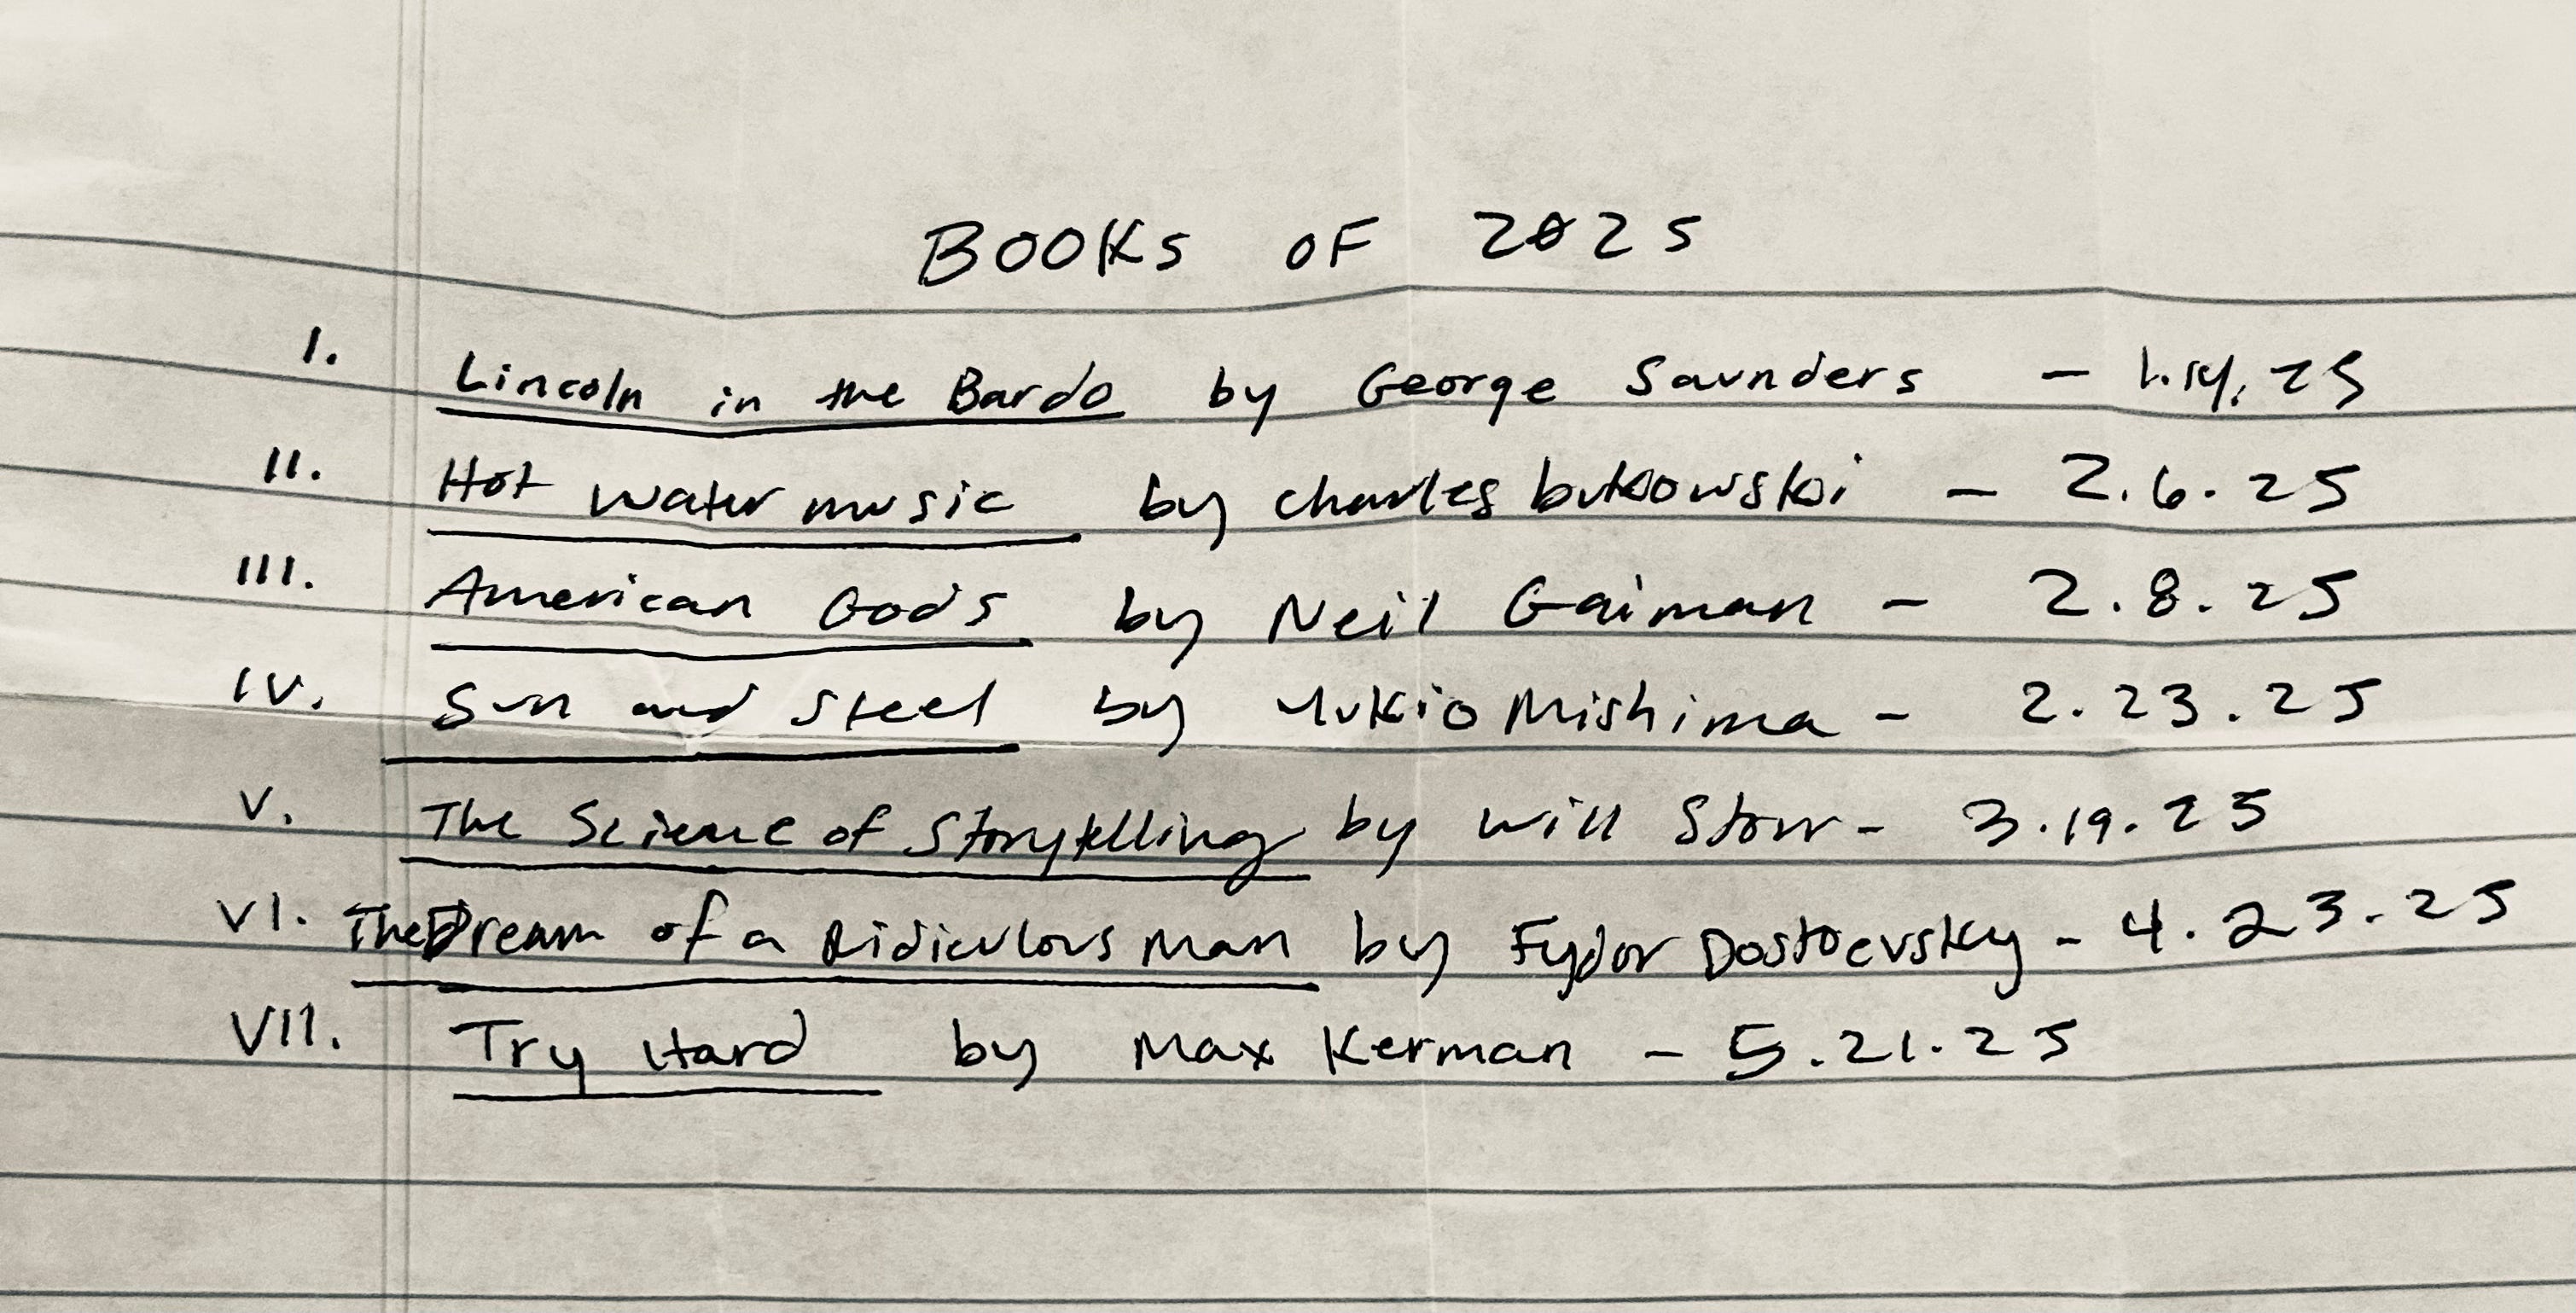 BOOKS OF 2025
I. Lincoln in the Bardo by George Saunders - 1.14.25
II. Hot Water music by Charles bukowski - 2.6.25
III. American Gods by Neil Gaiman - 2.8.25
IV. Sun and Steel by Yukio Mishima - 2.23.25
V. The Science of Storytelling by Will Storr - 3.19.25
VI. The Dream of a Ridiculous Man by Fydor Dostoevsky - 4.23.25
VII. Try Hard by Max Kerman - 5.21.25